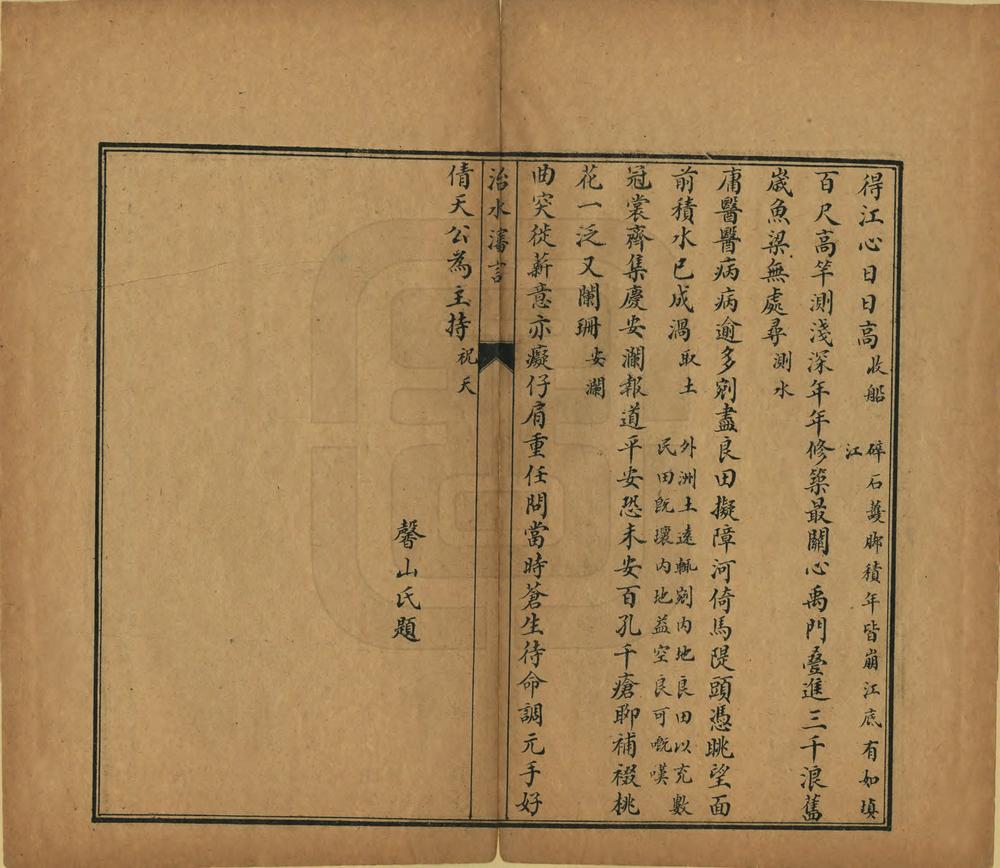 得江心日日高 收船 碎石護腳積年皆崩江底有如填江
百尺高竿測淺深年年修築最關心禹門疊進三千浪舊
歲魚梁無處尋 測水
庸醫醫病病逾多剜盡良田擬障河倚馬隄頭憑眺望面
前積水已成渦 取土 外洲土遠輒剜內地良田以充數民田既壞內地益空良可嘅嘆
冠裳齊集慶安瀾報道平安恐未安百孔千瘡聊補裰桃
花一泛又闌珊 安瀾
曲突徙薪意亦癡仔肩重任問當時蒼生待命調元手好
治水濤言
倩天公為主持 祝天
馨山氏題